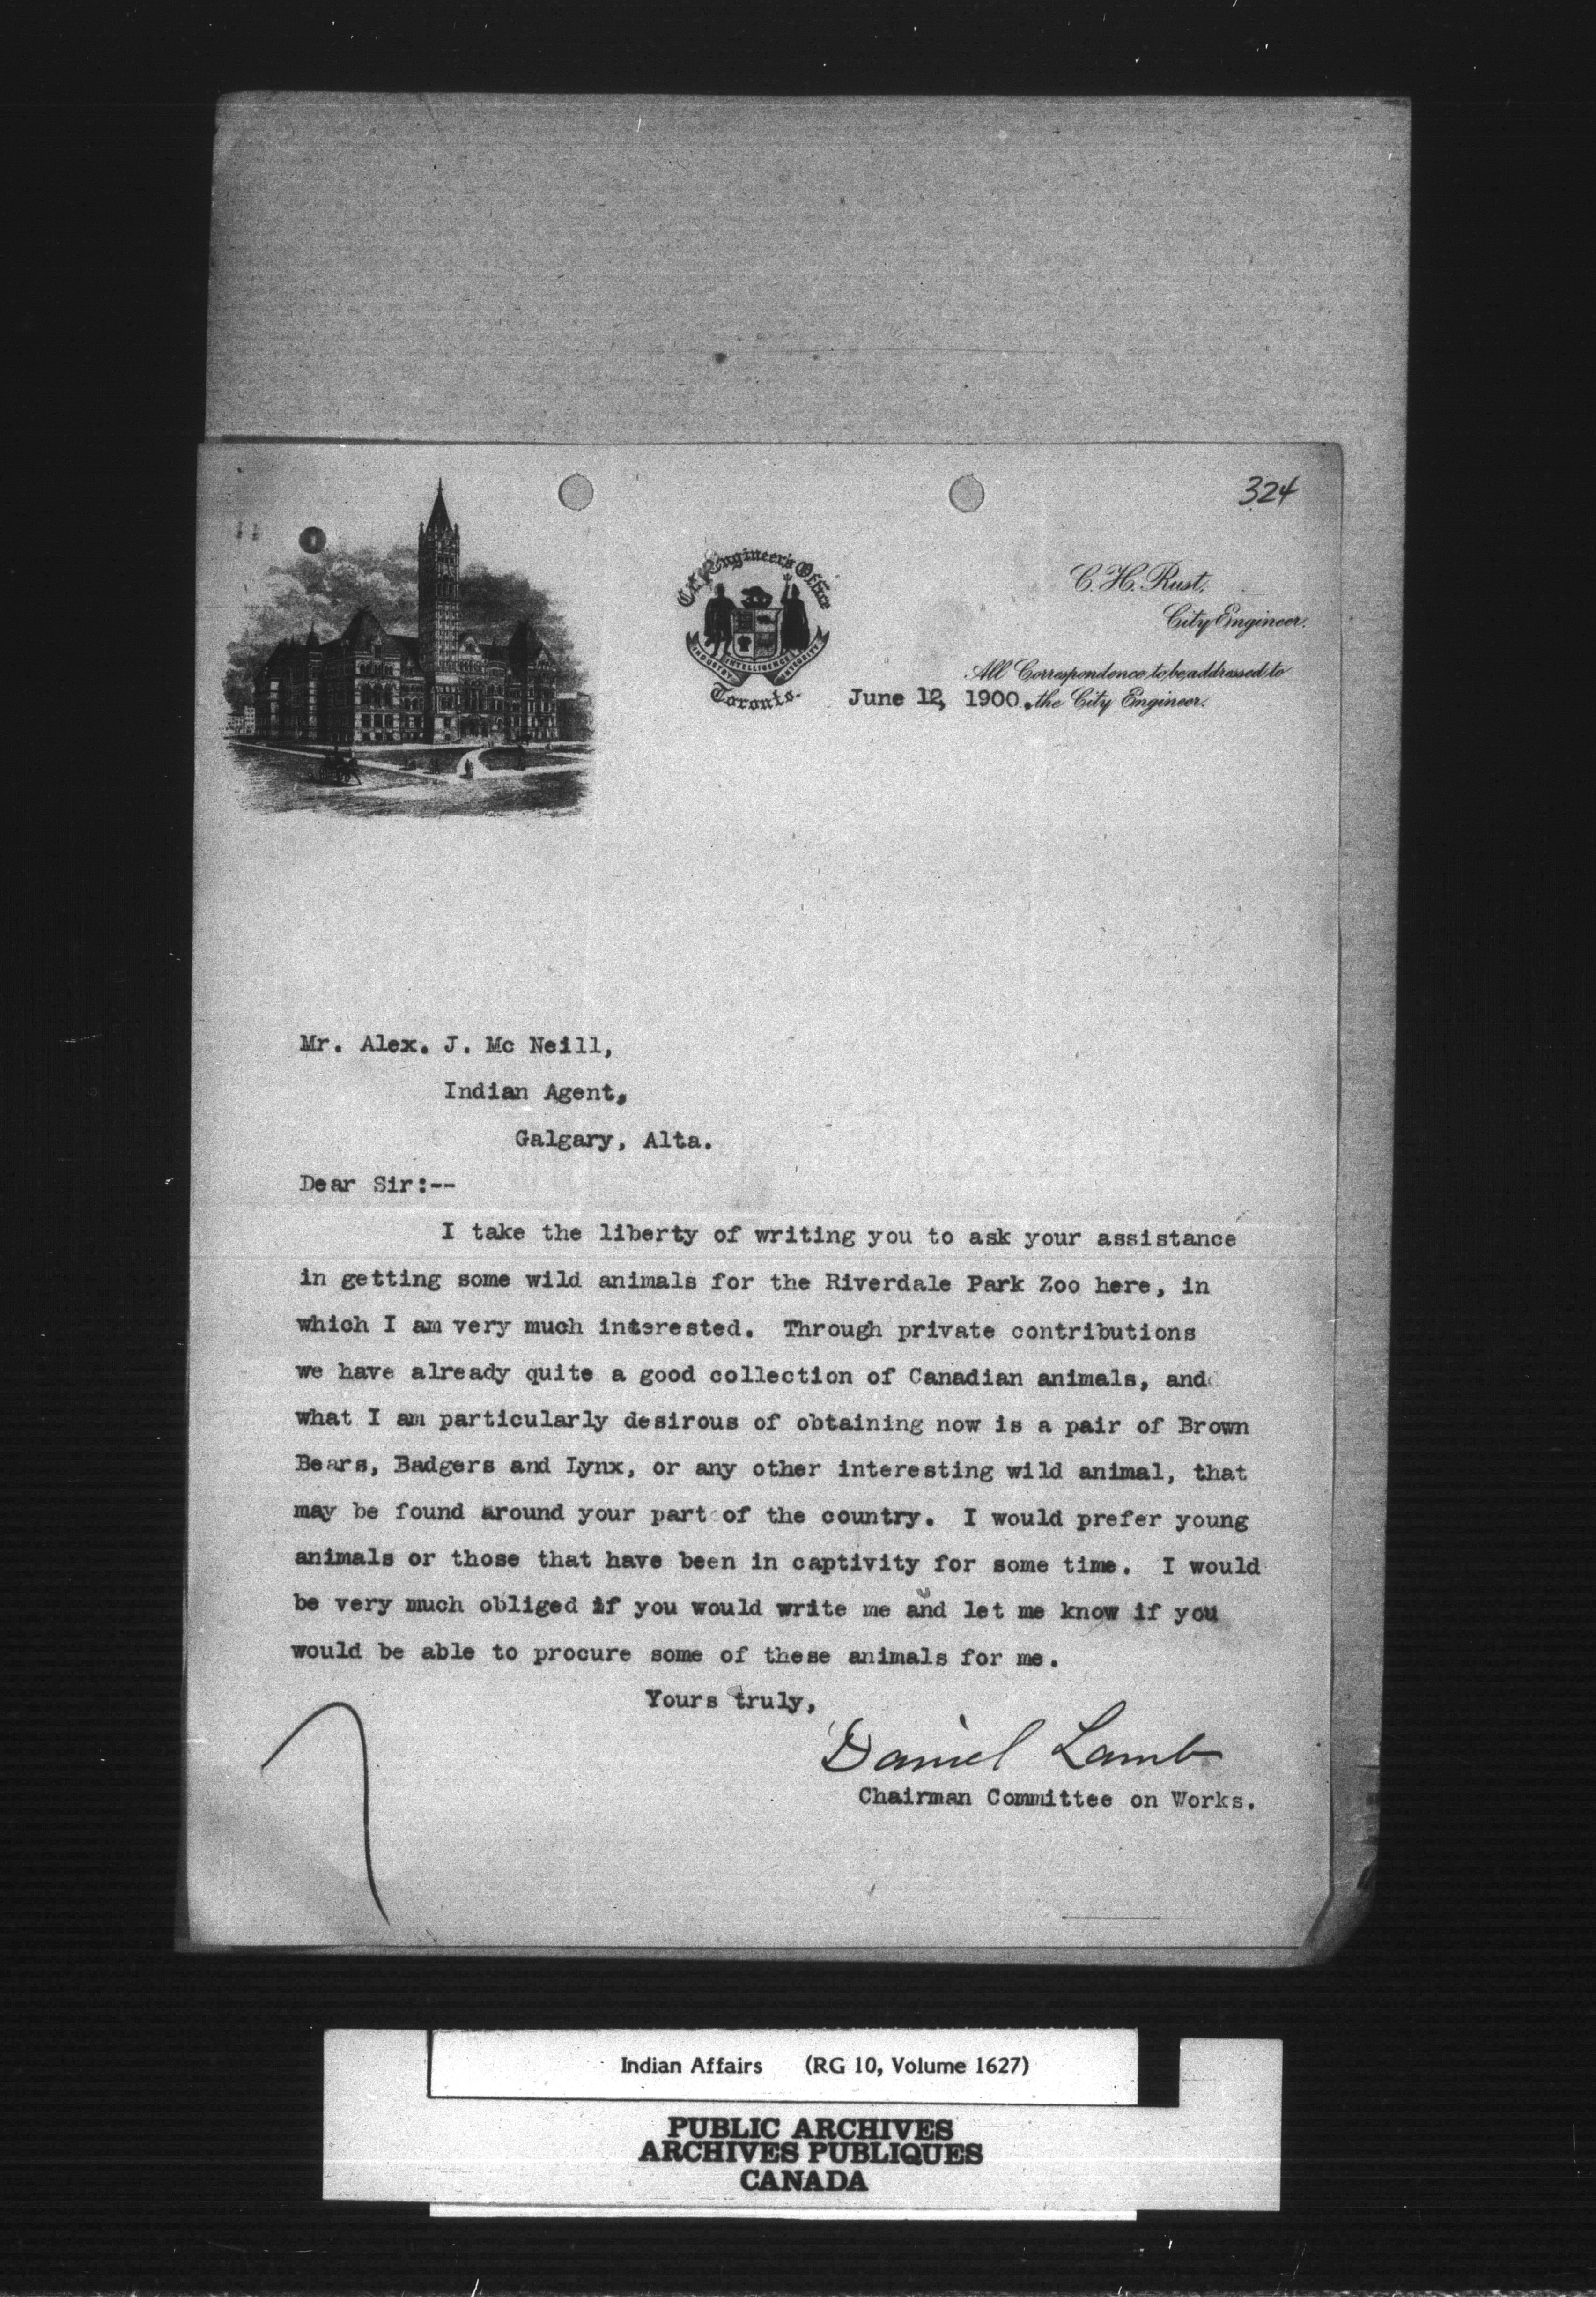 324
City Engineer's Office
INDUSTRY INTELLIGENCE INTEGRITY
Toronto.
C. H. Rust,
City Engineer.
All Correspondence to be addressed to
the City Engineer.
June 12, 1900.
Mr. Alex. J. Mc Neill,
Indian Agent,
Galgary, Alta.
Dear Sir:--
I take the liberty of writing you to ask your assistance
in getting some wild animals for the Riverdale Park Zoo here, in
which I am very much interested. Through private contributions
we have already quite a good collection of Canadian animals, and
what I am particularly desirous of obtaining now is a pair of Brown
Bears, Badgers and Lynx, or any other interesting wild animal, that
may be found around your part of the country. I would prefer young
animals or those that have been in captivity for some time. I would
be very much obliged if you would write me and let me know if you
would be able to procure some of these animals for me.
Yours truly,
Daniel Lamb
Chairman Committee on Works.
Indian Affairs (RG 10, Volume 1627)
PUBLIC ARCHIVES
ARCHIVES PUBLIQUES
CANADA